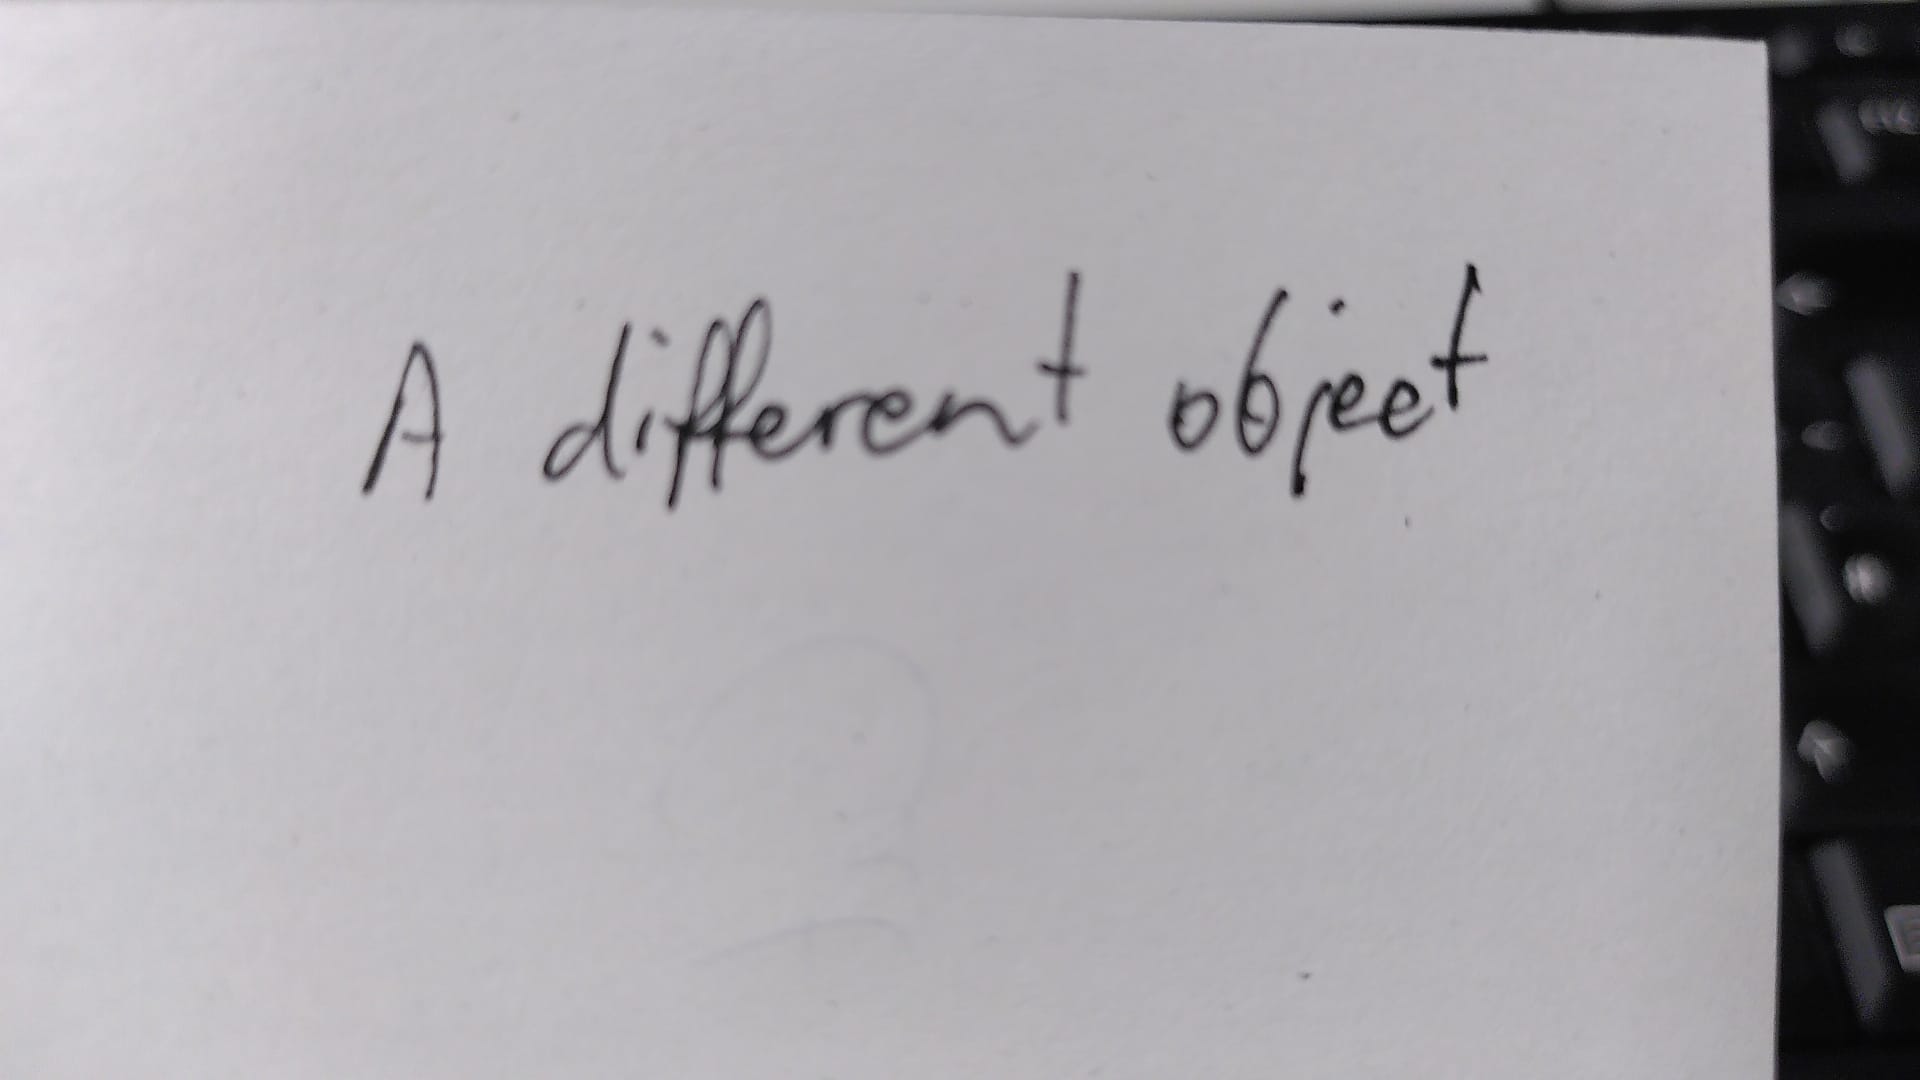 A different object